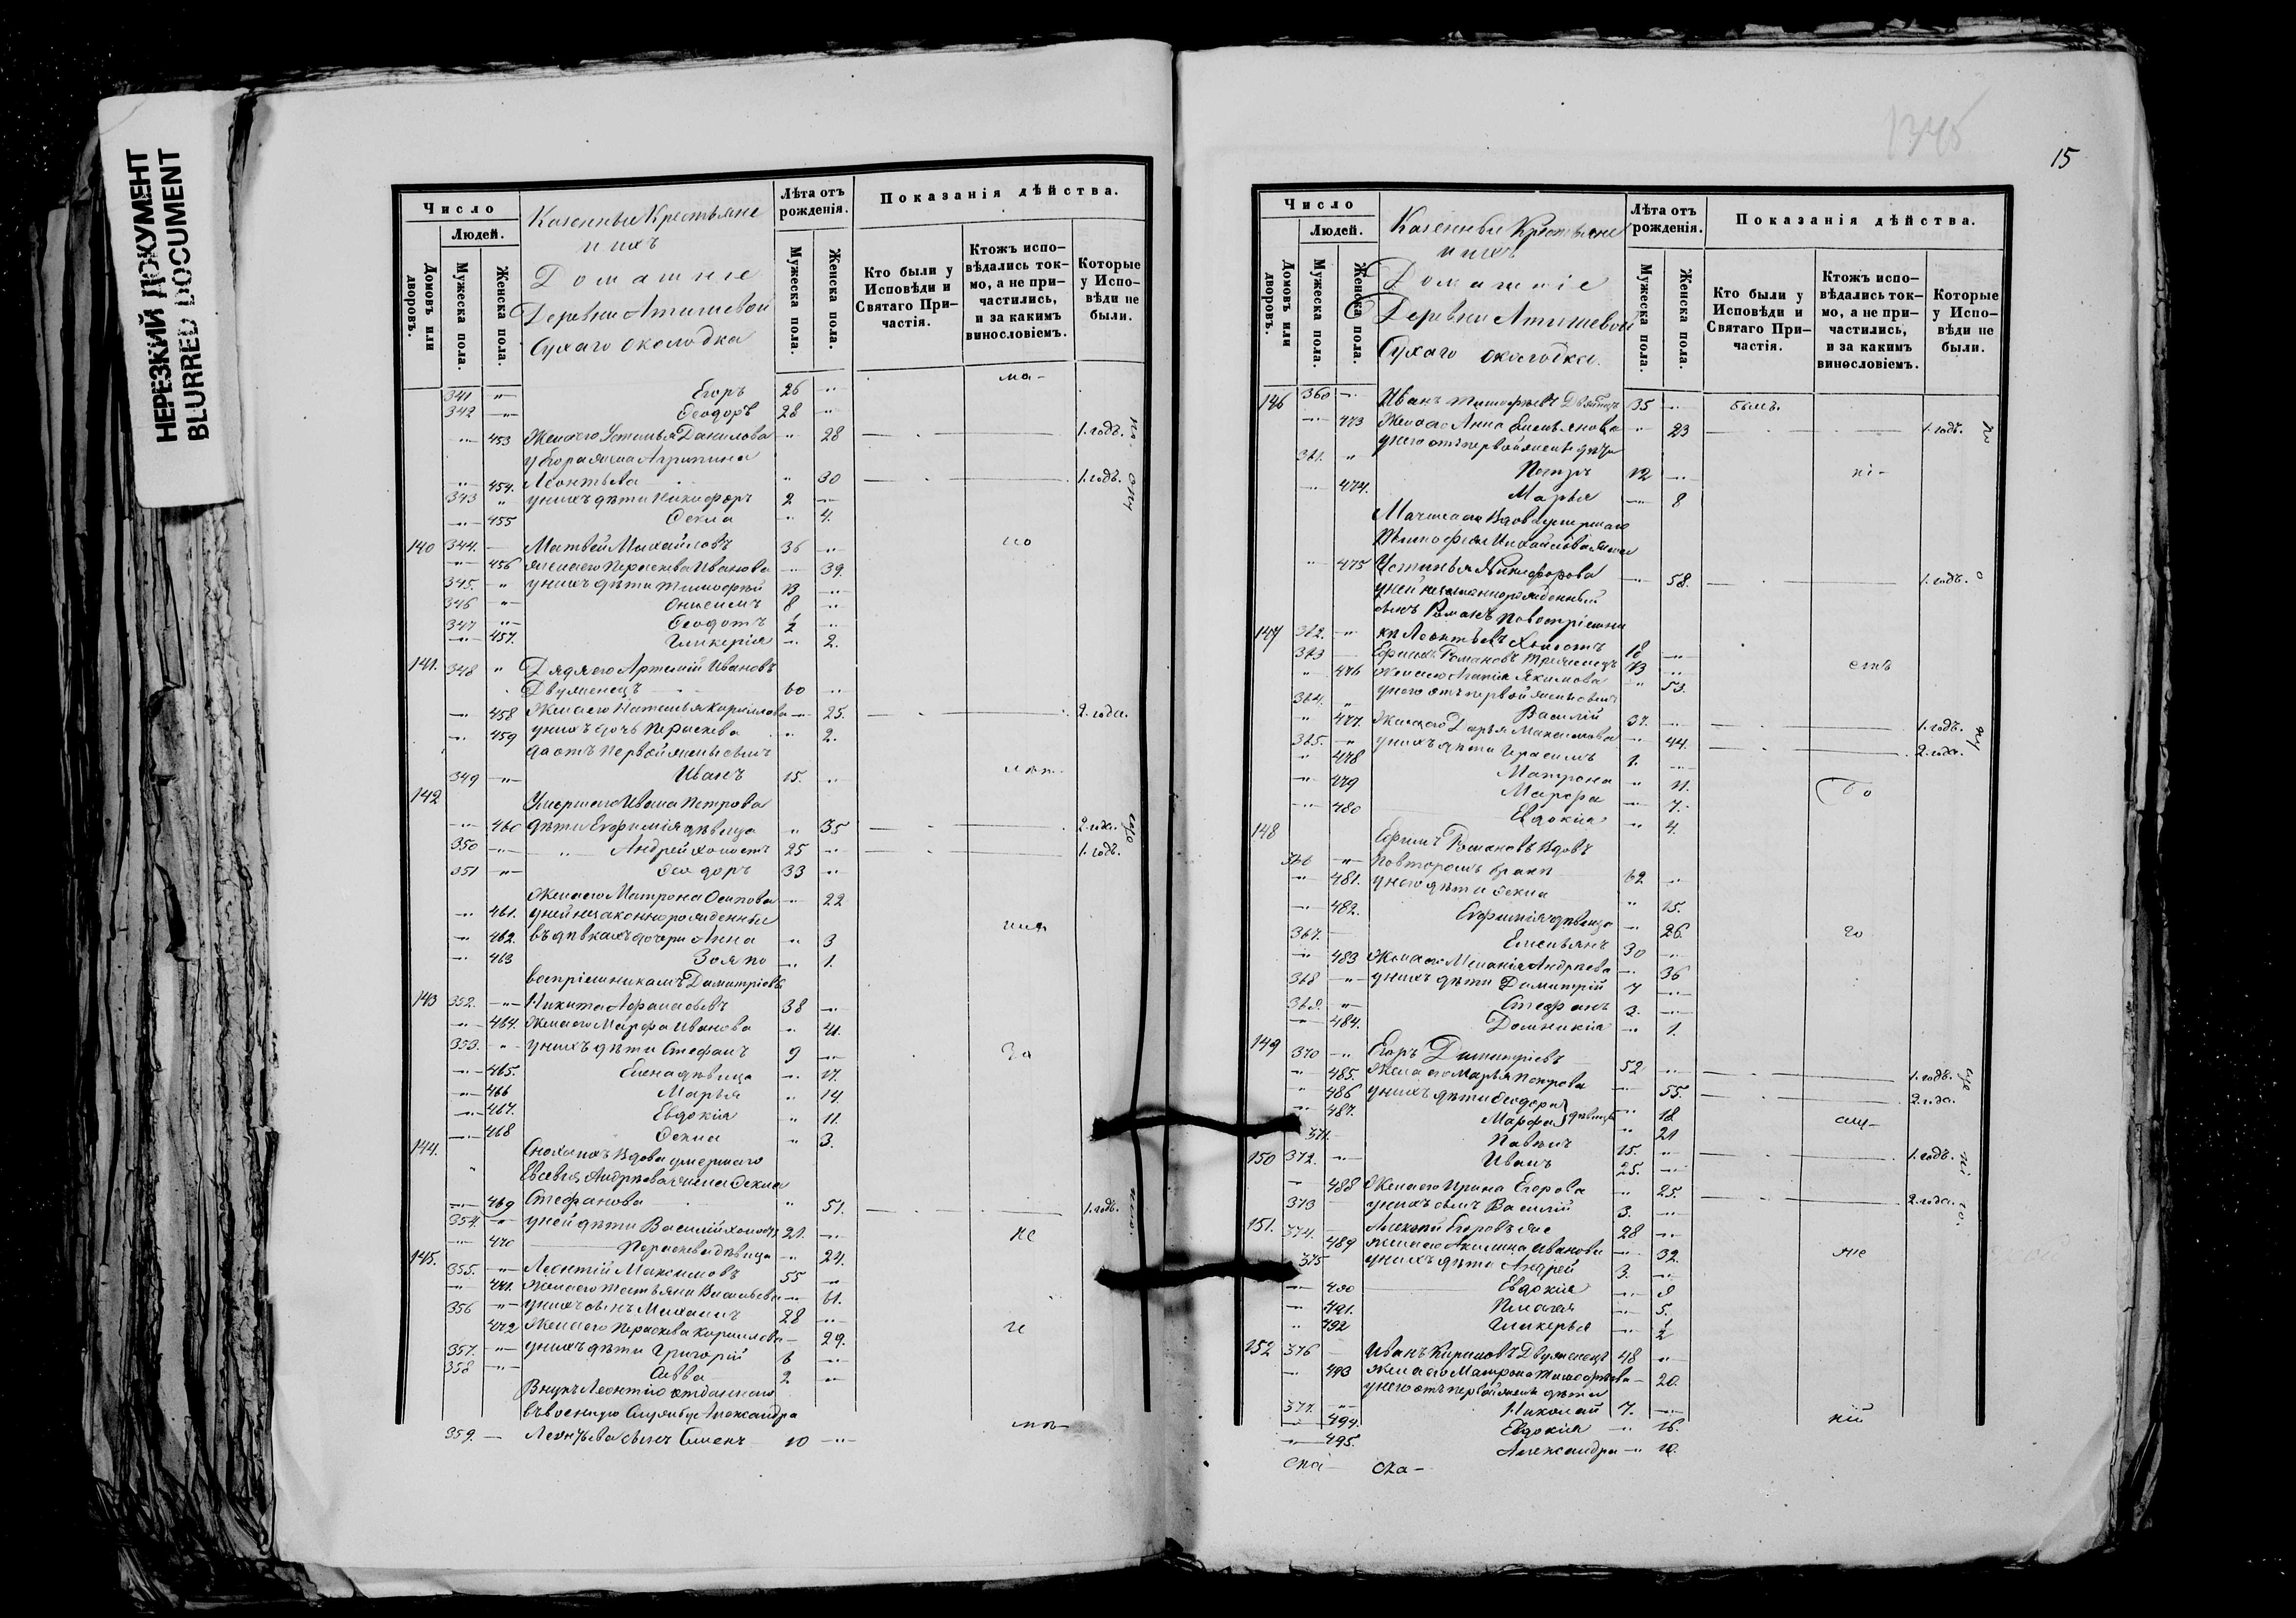 НЕРЕЗКИЙ ДОКУМЕНТ
BLURRED DOCUMENT
Число
Людей.
Домовъ или дворовъ.
Мужеска пола.
Женска пола.
Казенные Крестьяне
и ихъ
Домашніе
Деревни Атишевой
Сухаго околодка
Лѣта отъ рожденія.
Мужеска пола.
Женска пола.
Показанія дѣйства.
Кто были у Исповѣди и Святаго Причастія.
Ктожъ исповѣдались токмо, а не причастились, и за какимъ винословіемъ.
Которые у Исповѣди не были.
341 " Егоръ 26 "
342 " Ѳеодоръ 28 "
" 453 Жена его Устинья Данилова " 28 1. годъ.
у Егора жена Агрипина
" 454. Леонтьева " 30 1. годъ.
343 " у нихъ дѣти Никифоръ 2 "
" 455 Ѳекла " 4.
140 344. Матвей Михайловъ 36 "
" 456 жена его Параскева Иванова " 39.
345. " у нихъ дѣти Тимоѳей 13 "
346 " Онисимъ 8 "
347 " Ѳеодотъ ½ "
" 457. Гликерія " 2.
141. 348 " Дядя его Артемій Ивановъ
Двуженецъ 60 "
" 458 Жена его Наталья Кирилова " 25. 2. года.
" 459 у нихъ дочь Параскева " 2.
да отъ первой жены сынъ
349 " Иванъ 15. "
142 Умершаго Ивана Петрова
" 460 дѣти Евфимія дѣвица " 35 2. года.
350 " Андрей холостъ 25 " 1. годъ.
351 " Ѳеодоръ 33 "
Жена его Матрона Осипова " 22
" 461. у ней незаконнорожденные
" 462. въ дѣвкахъ дочери Анна " 3
" 463 Зоя по " 1.
воспріемникамъ Димитріевы
143 352. " Никита Аѳанасьевъ 38 "
" 464. Жена его Марѳа Иванова " 41.
353. " у нихъ дѣти Стефанъ 9 "
" 465. Елена дѣвица " 17.
" 466 Марья " 14
" 467. Евдокія " 11.
" 468 Ѳекла " 3.
144. Сноха ихъ Вдова умершаго
Евсевія Андреева жена Ѳекла
" 469 Стефанова " 51. 1. годъ.
354. " у ней дѣти Василій холостъ 21. "
" 470 Параскева дѣвица " 24.
145. 355. " Леонтій Максимовъ 55 "
" 471. Жена его Татьяна Васильева " 61.
356 " у нихъ сынъ Михаилъ 28 "
472 Жена его Параскева Кирилова " 29.
357. " у нихъ дѣти Григорій 6 "
358 " Савва 2 "
Внукъ Леонтію отданнаго
въ военную службу Александра
359. Леонтьева сынъ Семенъ 10 "
15
Число
Людей.
Домовъ или дворовъ.
Мужеска пола.
Женска пола.
Казенные Крестьяне
и ихъ
Домашніе
Деревни Атишевой
Сухаго околодка.
Лѣта отъ рожденія.
Мужеска пола.
Женска пола.
Показанія дѣйства.
Кто были у Исповѣди и Святаго Причастія.
Ктожъ исповѣдались токмо, а не причастились, и за какимъ винословіемъ.
Которые у Исповѣди не были.
146 360 Иванъ Тимоѳеевъ 35 " былъ.
" 473 Жена его Анна Емельянова " 23 1. годъ.
у него отъ первой жены дѣти
361. " Петръ 12 "
" 474. Марья " 8
Мачиха его Вдова умершаго
Тимоѳея Михайлова жена
" 475 Устинья Никифорова " 58. 1. годъ.
у ней незаконнорожденный
сынъ Романъ по воспріемни
147 362. " ку Леонтьевъ Холостъ 18 "
363 Ефимъ Романовъ Троеженецъ 73 "
" 476 Жена его Агапія Якимова " 53.
364. " у него отъ первой жены сынъ
Василій 37. " 1. годъ.
" 477. Жена его Дарья Максимова " 44. 2. года.
365. " у нихъ дѣти Герасимъ 1. "
" 478 Матрона " 11.
" 479 Марѳа " 7.
" 480 Евдокія " 4.
148 Ефимъ Романовъ Вдовъ
366 " по второмъ бракѣ 62 "
" 481. у него дѣти Ѳекла " 15.
" 482. Евфимія дѣвица " 26.
367. Емельянъ 30 "
" 483 Жена его Меланія Андреева " 36
368 " у нихъ дѣти Димитрій 7 "
369. " Стефанъ 3. "
" 484. Домникія " 1.
149 370 " Егоръ Димитріевъ 52 " 1. годъ.
" 485. Жена его Марья Петрова " 55. 2. года.
" 486 у нихъ дѣти Ѳеодора " 18
" 487. Марѳа дѣвицы " 21
371. Павелъ 15. "
150 372. " Иванъ 25. " 1. годъ.
" 488 Жена его Ирина Егорова " 25. 2. года.
373 у нихъ сынъ Василій 3. "
151. 374. Алексѣй Егоровъ же 28 "
489 Жена его Акилина Иванова " 32.
375 у нихъ дѣти Андрей 3. "
" 490 Евдокія " 9
" 491. Пелагея " 5.
" 492 Гликерья " ½
152 376 Иванъ Кириловъ Двуженецъ 48 "
" 493 Жена его Матрона Тимоѳеева " 20.
у него отъ первой жены дѣти
377. " Николай 7. "
" 494. Евдокія " 16.
" 495. Александра " 10.